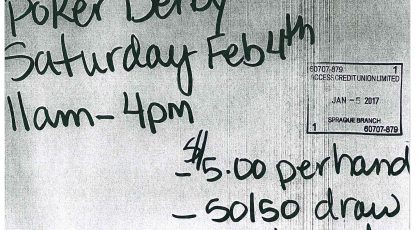 Poker Derby
Saturday Feb 4th
11am - 4pm
60707-879 1
ACCESS CREDIT UNION LIMITED
JAN - 5 2017
SPRAGUE BRANCH
1 60707-879
- $5.00 per hand
- 50/50 draw